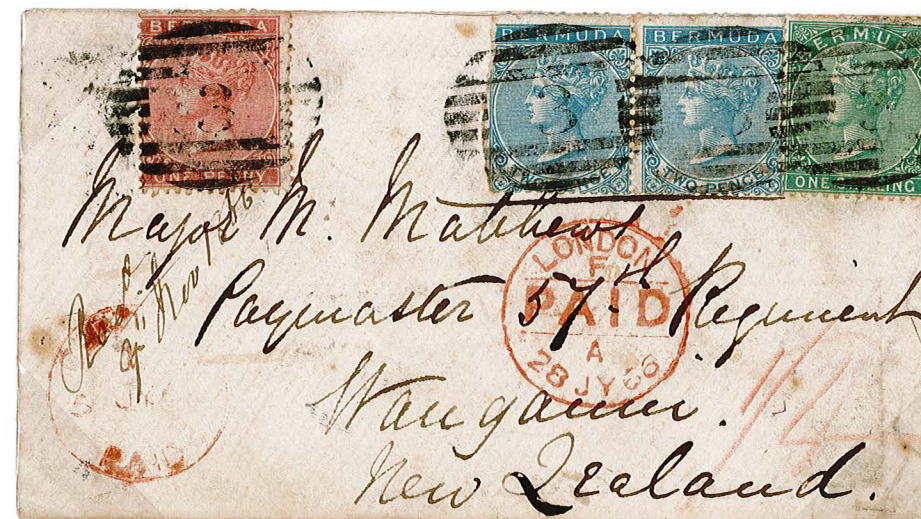 BERMUDA
ONE PENNY
BERMUDA
TWO PENCE
BERMUDA
TWO PENCE
BERMUDA
ONE SHILLING
Major M. Matthews
Paymaster 57th Regiment
Wanganui.
New Zealand.
LONDON
PAID
A
28 JY 66
PAID
Nov
1/4